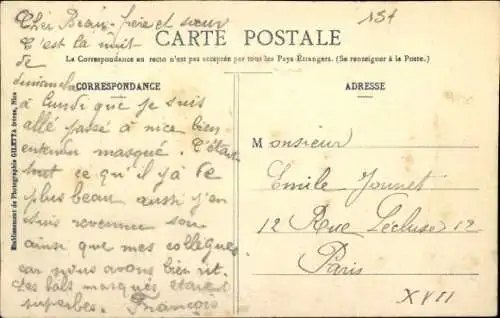 Cher Beau-frère et sœur
C'est la nuit
de
dimanche
à Lundi que je suis
allé passé à nice bien
entendu masqué. C'était
tout ce qu'il y a de
plus beau aussi j'en
suis revenue
ainsi que mes collègues
car nous avons bien rit.
Les bals masqués étaient
superbes. François
CARTE POSTALE
La Correspondance au recto n'est pas acceptée par tous les Pays Étrangers. (Se renseigner à la Poste.)
CORRESPONDANCE
ADRESSE
Monsieur
Emile Jounet
12 Rue Lécluse 12
Paris
XVII
Etablissement de Photographie GILETTA frères, Nice